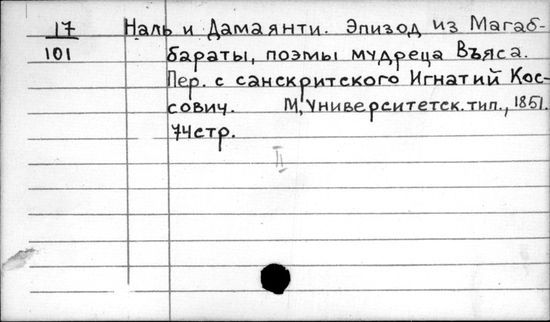 17 Наль и Дамаянти. Эпизод из Магаб-
101 бараты, поэмы мудреца Въяса.
Пер. с санскритского Игнатий Кос-
сович. М, Университетск. тип., 1851.
74стр.
II